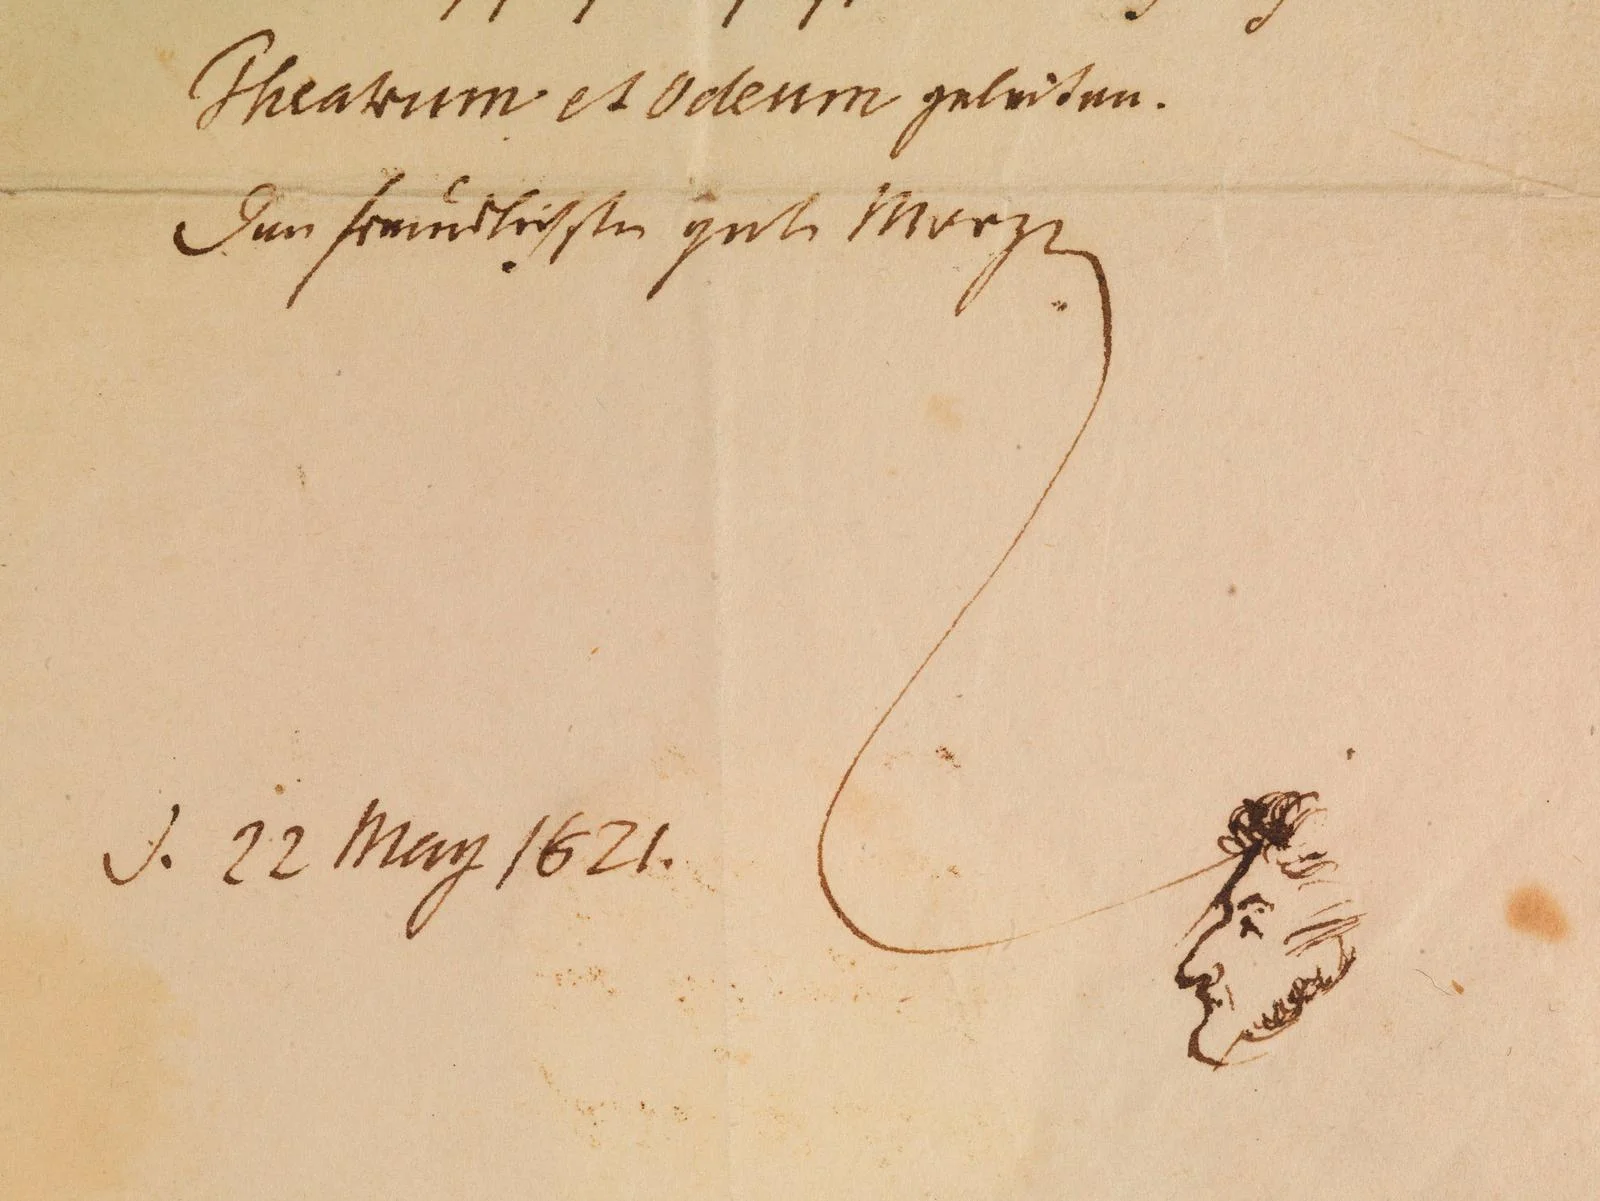 Theatrum et Odeum geleiten.
Den freundlichsten guten Morgen
d. 22 May 1621.